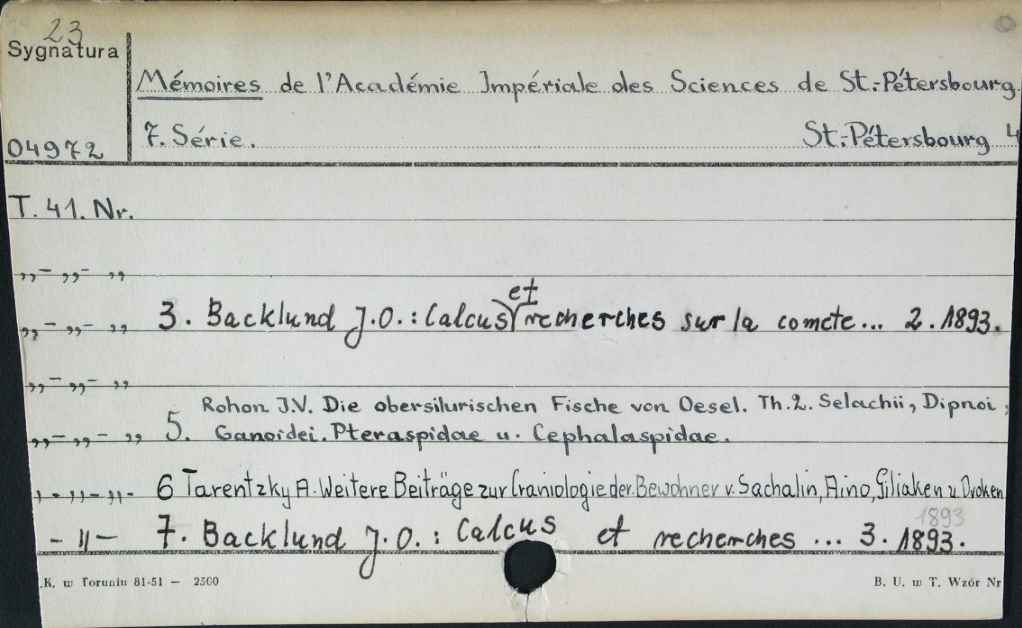 23
Sygnatura
Mémoires de l'Académie Impériale des Sciences de St.-Pétersbourg.
04972
7. Série. St.-Pétersbourg 4
T. 41. Nr.
,,- ,,- ,,
,,- ,,- ,, 3. Backlund J.O.: Calcus et recherches sur la comete... 2. 1893.
,,- ,,- ,,
Rohon J.V. Die obersilurischen Fische von Oesel. Th.2. Selachii, Dipnoi,
,,- ,,- ,, 5. Ganoidei. Pteraspidae u. Cephalaspidae.
,- ,,- ,,- 6 Tarentzky A. Weitere Beiträge zur Craniologie der Bewohner v. Sachalin, Aino, Giliaken u. Oroken
1893
- ,, - 7. Backlund J.O.: Calcus et recherches ... 3. 1893.
.K. w Toruniu 81-51 — 2500 B. U. w T. Wzór Nr